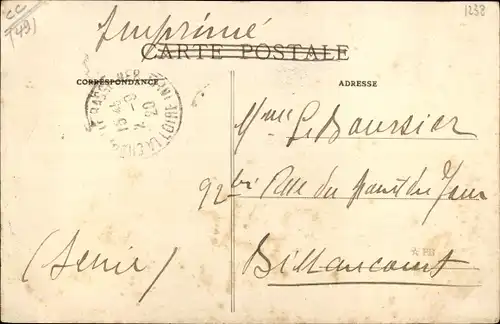 CC
(49)
1238
Imprimé
CARTE POSTALE
CORRESPONDANCE
ADRESSE
Mme G. Boursier
92 bis Rue du Point du Jour
Billancourt
(Seine)